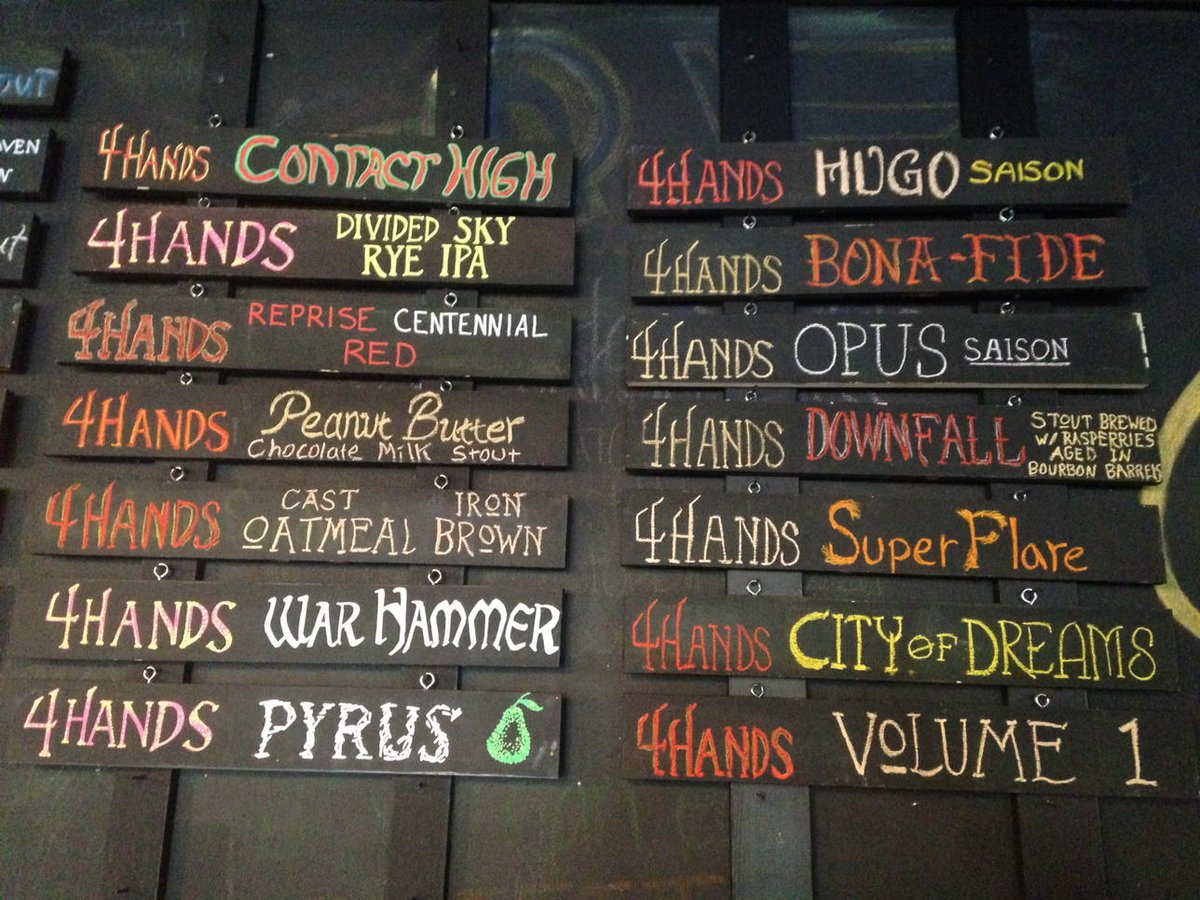 OUT
VEN
4HANDS CONTACT HIGH
4HANDS DIVIDED SKY
RYE IPA
4HANDS REPRISE CENTENNIAL
RED
4HANDS Peanut Butter
Chocolate Milk Stout
4HANDS CAST IRON
OATMEAL BROWN
4HANDS WAR HAMMER
4HANDS PYRUS
4HANDS HUGO SAISON
4HANDS BONA-FIDE
4HANDS OPUS SAISON
4HANDS DOWNFALL STOUT BREWED
W/ RASPERRIES
AGED IN
BOURBON BARRELS
4HANDS Super Flare
4HANDS CITY OF DREAMS
4HANDS VOLUME 1